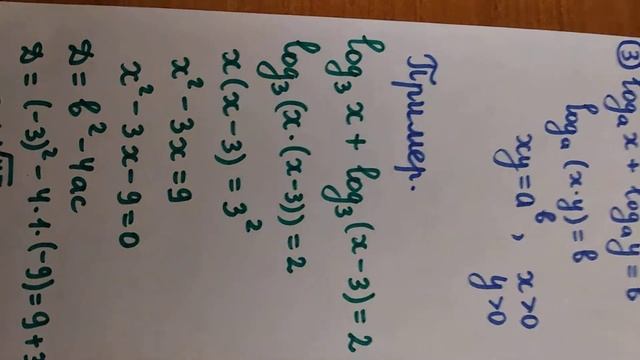 ③ logₐ x + logₐ y = b
logₐ (x·y) = b
xy = aᵇ, x>0
y>0
Пример.
log₃ x + log₃ (x-3) = 2
log₃ (x·(x-3)) = 2
x(x-3) = 3²
x² - 3x = 9
x² - 3x - 9 = 0
D = b² - 4ac
D = (-3)² - 4·1·(-9) = 9 +